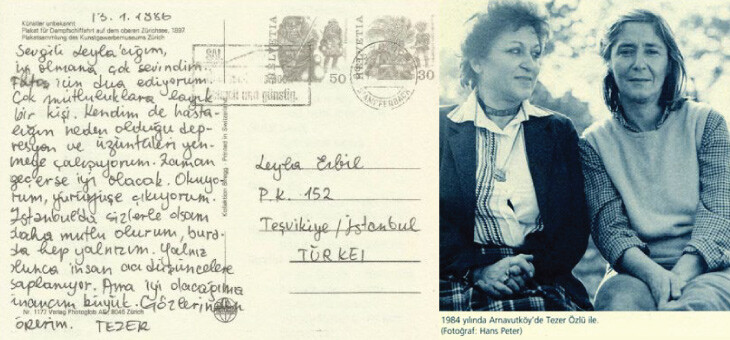 13.1.1986
Künstler unbekannt
Plakat für Dampfschiffahrt auf dem oberen Zürichsee, 1897
Plakatsammlung des Kunstgewerbemuseums Zürich
Sevgili Leyla'cığım,
iyi olmana çok sevindim.
için dua ediyorum.
Çok mutluluklara layık
bir kişi. Kendim de hasta-
lığın neden olduğu dep-
resyon ve üzüntüleri yen-
meye çalışıyorum. Zaman
geçerse iyi olacak. Okuyo-
rum, yürüyüşe çıkıyorum.
İstanbul'da sizlerle olsam
daha mutlu olurum, bura-
da hep yalnızım. Yalnız
olunca insan acı düşüncelere
saplanıyor. Ama iyi olacağıma
inancım büyük. Gözlerinden
öperim. TEZER
Nr. 1177 Verlag Photoglob AG, 8045 Zürich
Printed in Switzerland
HELVETIA
50
HELVETIA
30
günstig.
Leyla Erbil
P.K. 152
Teşvikiye/İstanbul
TÜRKEI
1984 yılında Arnavutköy'de Tezer Özlü ile.
(Fotoğraf: Hans Peter)